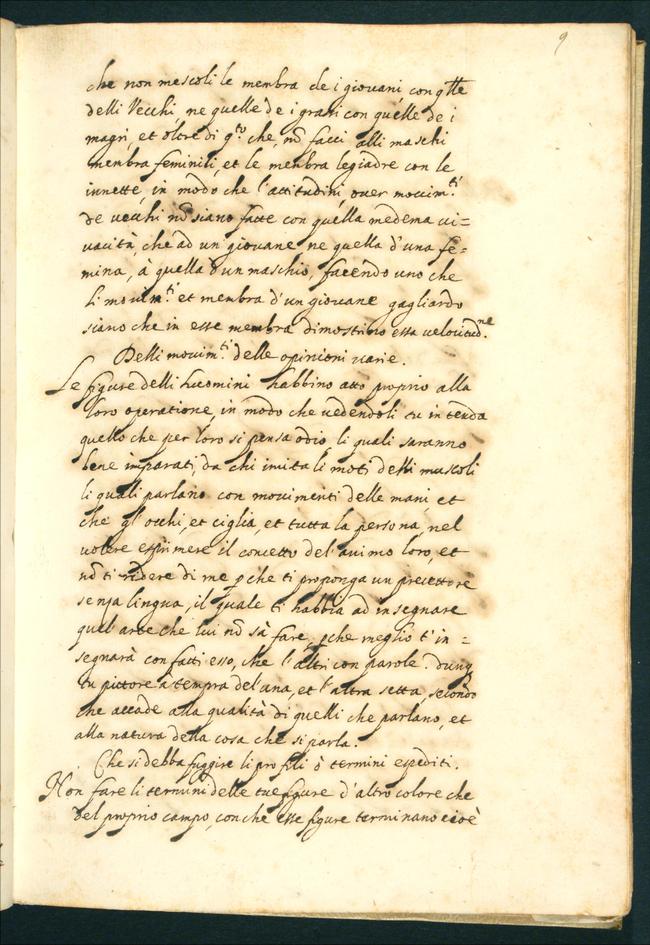 9
che non mescoli le membra de i giovani con q.lle
delli Vecchi, ne quelle de i grassi con quelle de i
magri, et oltre di q.to che, nō facci alli maschi
membra feminili, et le membra legiadre con le
innette, in modo che l'attitudini, over movim.ti
de vecchi nō siano fatte con quella medema vi=
vacità, che ad un giovane, ne quella d'una fe=
mina, à quella d'un maschio, facendo uno che
li movim.ti et membra d'un giovane gagliardo
siano che in esse membra dimostrino essa velocitud.ne
Delli movim.ti delle opinioni varie.
Le figure delli huomini habbino atto proprio alla
loro operatione, in modo che vedendoli tu intenda
quello che per loro si pensa o dio, li quali saranno
bene imparati, da chi imita li moti delli muscoli
li quali parlano con movimenti delle mani, et
che gl'occhi, et ciglia, et tutta la persona, nel
volere esprimere il concetto del'animo loro, et
nō ti ridere di me p che ti proponga un precettore
senza lingua, il quale ti habbia ad insegnare
quel'arte che lui nō sà fare, pche meglio t'in=
segnarà con fatti esso, che l'altri con parole. dunq
tu pittore a tempra del'ana, et l'altra setta, secōdo
che accade alla qualità di quelli che parlano, et
alla natura della cosa che si parla.
Che si debba fuggire li profili ò termini espediti.
Non fare li termini delle tue figure d'altro colore che
del proprio campo, con che esse figure terminano cioè